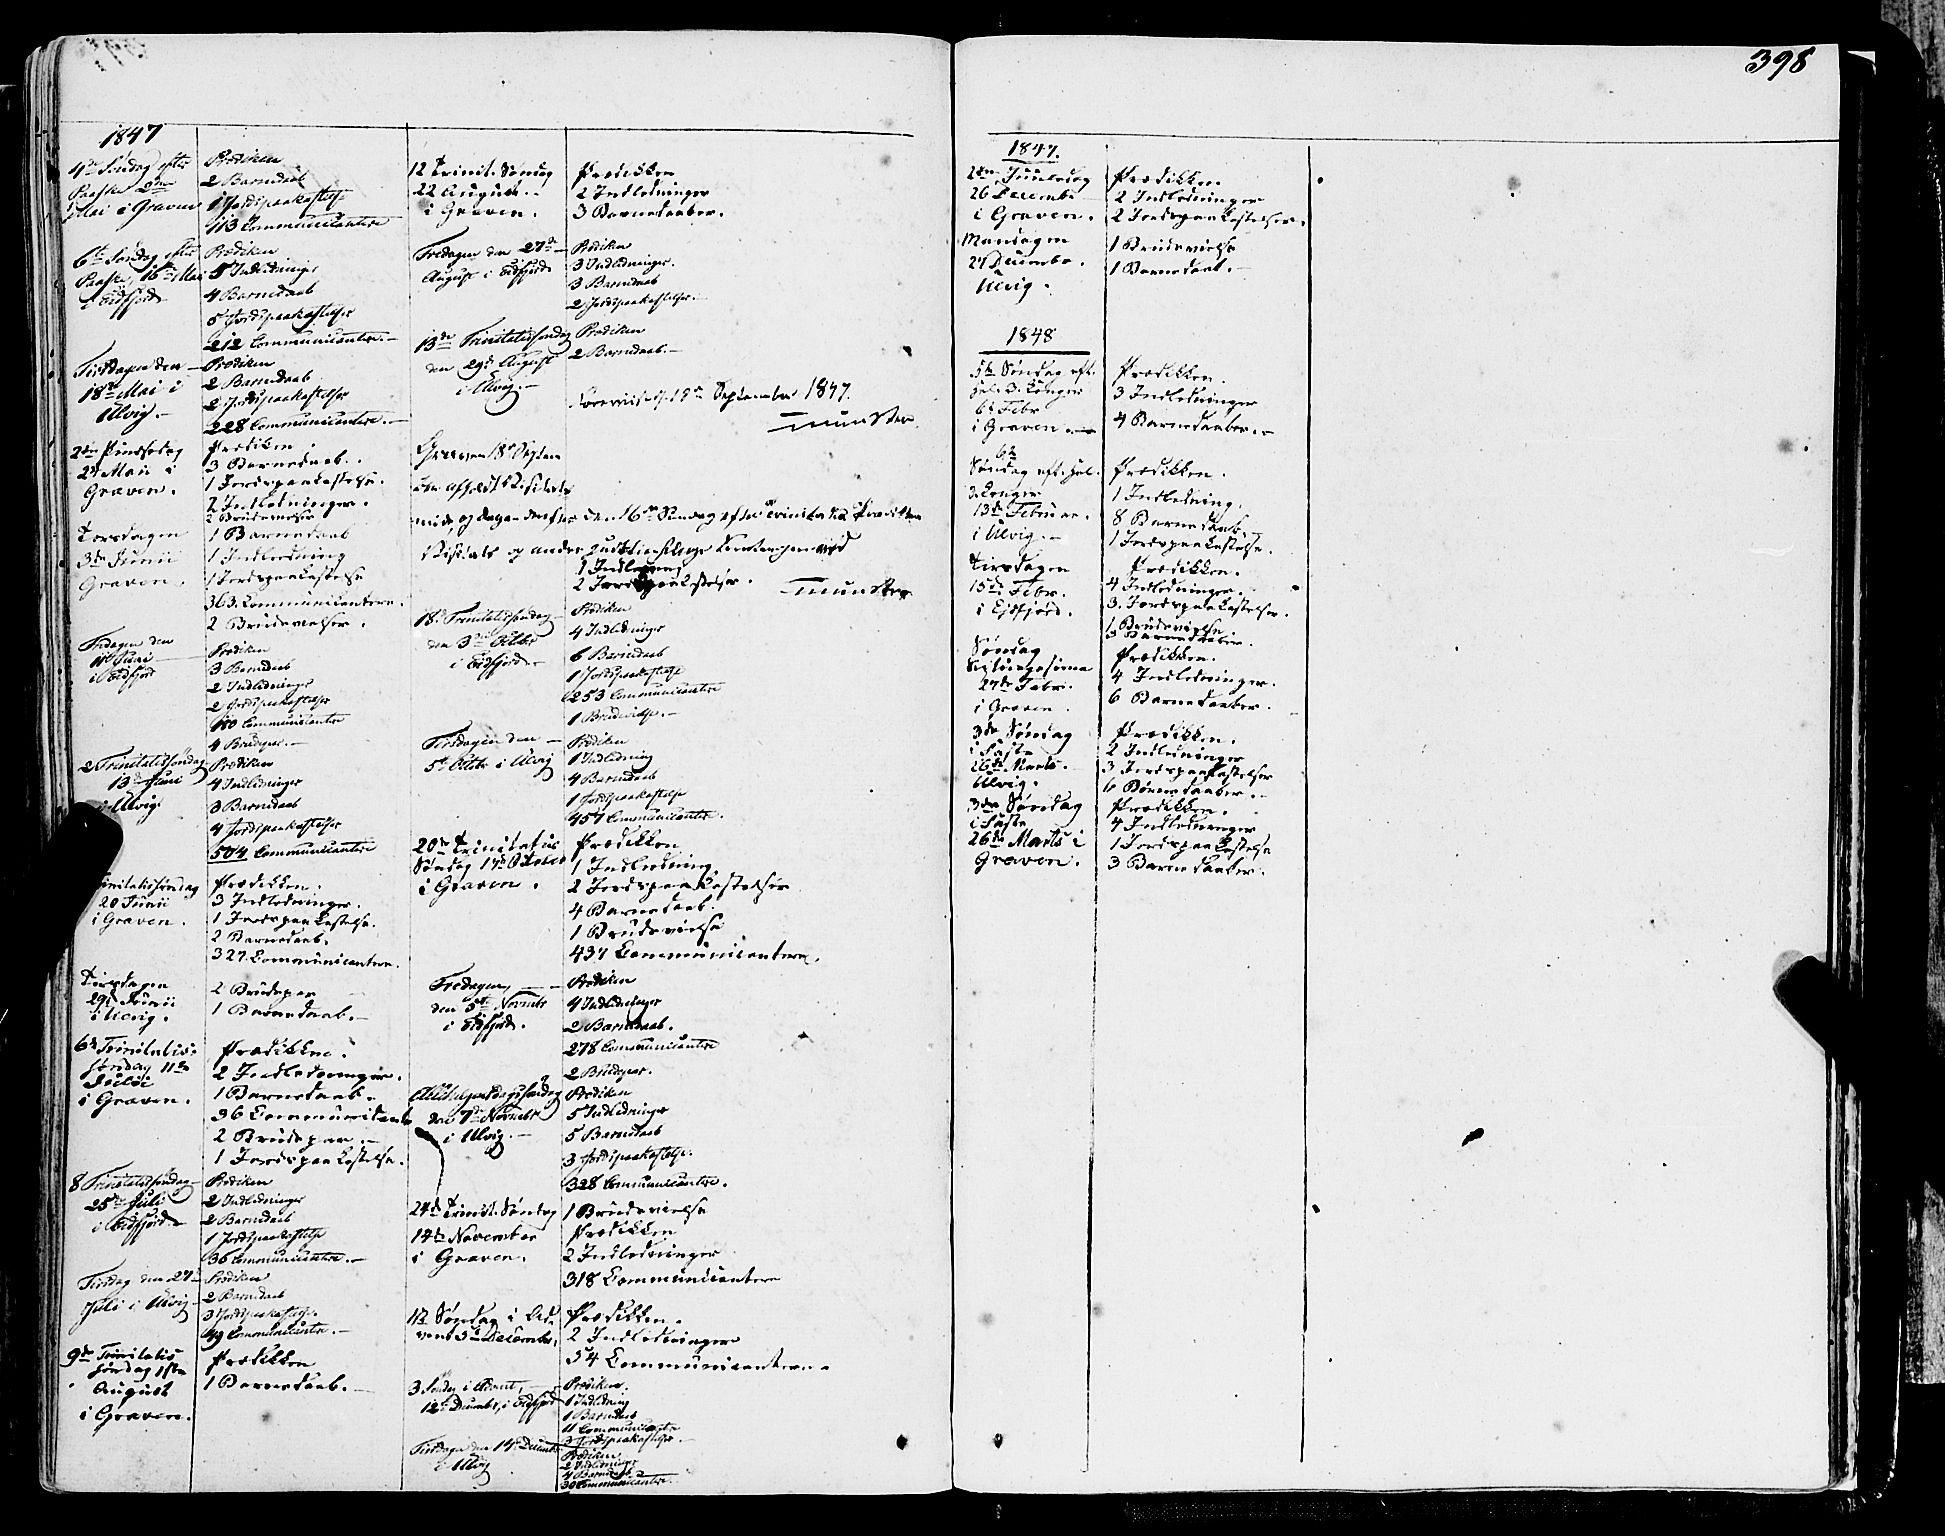 398
1847
4de Søndag efter
Paaske 2den
Mai i Graven
Prædiken
2 Barnedaab
1 Jordspaakastelse
113 Communicantere
6te Søndag efter
Paaske, 16de Mai
i Eidfjord
Prædiken
5 Indledninger
4 Barnedaab
5 Jordspaakastelser
212 Communicantere.
Tirsdagen den
18de Mai i
Ulvig.
Prædiken
2 Barnedaab
2 Jordspaakastelser
228 Communicantere.
2den Pindsedag
24 Maii i
Graven.
Prædiken
3 Barnedaab.
1 Jordspaakastelse.
2 Indledninger.
2 Brudevielser
Torsdagen
3de Junii
Graven.
1 Barnedaab
1 Indledning
1 Jordspaakastelse
363 Communicantere.
2 Brudevielser.
Fredagen den
11te Juni
i Eidfjord
Prædiken
3 Barnedaab
2 Indledninger
2 Jordspaakastelser
180 Communicantere
4 Brudepar.
2 Trinitatissøndag
13de Juni
i Ulvig.
Prædiken
4 Indledninger
3 Barnedaab
4 Jordspaakastelser
504 Communicantere
Trinitatissøndag
20 Junii
i Graven.
Prædikken.
3 Indledninger.
1 Jordspaakastelse.
2 Barnedaab.
327 Communicantere.
Tirsdagen
29de Junii
i Ulvig.
2 Brudepar
1 Barnedaab.
6te Trinitatis
søndag 11te
Julii
i Graven.
Prædikken.
2 Indledninger.
1 Barnedaab.
36 Communicant
2 Brudepar.
1 Jordspaakastelse.
8 Trinitatissøndag
25de Juli
i Eidfjord.
Prædiken
2 Indledninger
2 Barnedaab
1 Jordspaakastelse
36 Communicantere.
Tirsdag den 27de
Juli i Ulvig
Prædiken
2 Barnedaab
3 Jordspaakastelser.
49 Communicantere.
9de Trinitatis
søndag 1ste
August
i Graven.
Prædikken
1 Barnedaab.
12 Trinit. Søndag
22 August.
i Graven.
Prædikken
2 Indledninger
3 Barnedaaber.
Fredagen den 27de
August i Eidfjord
Prædiken
3 Indledninger.
3 Barnedaab
2 Jordspaakastelser.
13de Trinitatissøndag
den 29de August
i Ulvig.
Prædiken
2 Barnedaab.
September 1847.
Munster.
Graven 18 Septem
afholdt Visitats
og Dagen derefter den 16de Søndag efter Trinitatis Prædiken
Visitats og andre
1 Indledning
2 Jordspaakastelser.
Munster
18de Trinitatissøndag
den 3die Octbr
i Eidfjord.
Prædiken
4 Indledninger
6 Barnedaab
1 Jordspaakastelse
253 Communicantere
1 Brudevielse.
Tirsdagen den
5te Octbr i Ulvig
Prædiken
1 Indledning
4 Barnedaab
1 Jordspaakastelse
457 Communicantere.
20de Trinitatis
Søndag 17de October
i Graven.
Prædikken
1 Indledning
2 Jordspaakastelser
4 Barnedaab.
1 Brudevielse
437 Communicantere.
Fredagen,
den 5te Novembr
i Eidfjord.
Prædiken
4 Indledninger
2 Barnedaab.
278 Communicantere
2 Brudepar.
Allehelgensdagssøndag
den 7de Novembr
i Ulvig.
Prædiken
5 Indledninger
5 Barnedaab
3 Jordspaakastelser.
328 Communicantere.
24de Trinit. Søndag
14de November
i Graven.
1 Brudevielse
Prædikken
2 Indledninger
318 Communicantere
Søndag i Ad-
vent 5te December,
Prædikken.
2 Indledninger
54 Communicantere.
3 Søndag i Advent,
12te Decembr, i Eidfjord
Prædiken.
1 Indledning
1 Barnedaab
11 Communicantere
3 Jordspaakastelser.
Tirsdagen den 14de Decembr
i Ulvig
Prædiken.
2 Indledninger
4 Barnedaab
30 Communicantere.
1847.
2den Juuledag
26 December
i Graven.
Prædikken
2 Indledninger
2 Jordspaakastelser.
Mandagen
27 December.
Ulvig.
1 Brudevielse
1 Barnedaab.
1848
5te Søndag eft.
Hel. 3. Konger
6te Febr
i Graven.
Prædikken.
3 Indledninger
4 Barnedaaber.
6te
Søndag eft. Hel.
3. Konger
13de Februar.
i Ulvig.
Prædikken.
1 Indledning.
8 Barnedaab.
1 Jordspaakastelse.
Tirsdagen
15de Febr.
i Eidfjord.
Prædikken.
4 Indledninger.
3. Jordspaakastelser.
1 Brudevielse
3 Barnedaaber.
Søndag
Septuagesima
27de Febr.
i Graven.
Prædikken.
4 Indledninger.
6 Barnedaaber.
3de Søndag
i Faste
26de Marts.
Ulvig.
Prædikken.
2 Indledninger
3 Jordspaakastelser
6 Barnedaaber.
3de Søndag
i Faste
26de Marts i
Graven.
Prædikken.
4 Indledninger
1 Jordspaakastelse
3 Barnedaaber.